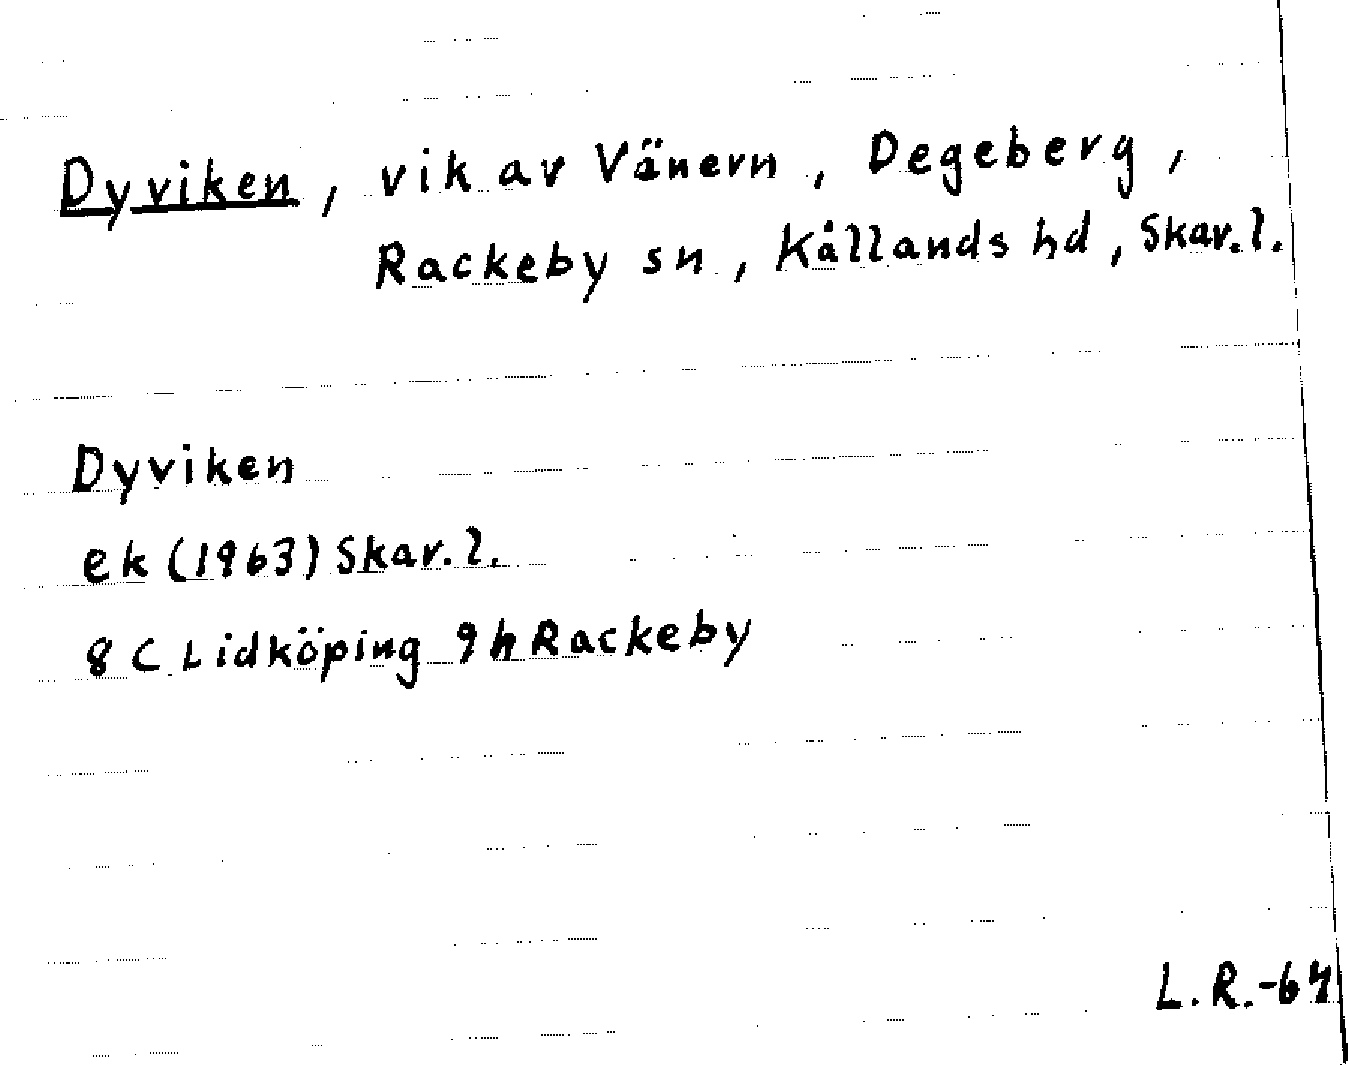 Dyviken, vik av Vänern, Degeberg,
Rackeby sn, Kållands hd, Skar.l.
Dyviken
ek (1963) Skar.l.
8 C Lidköping 9h Rackeby
L.R.-67